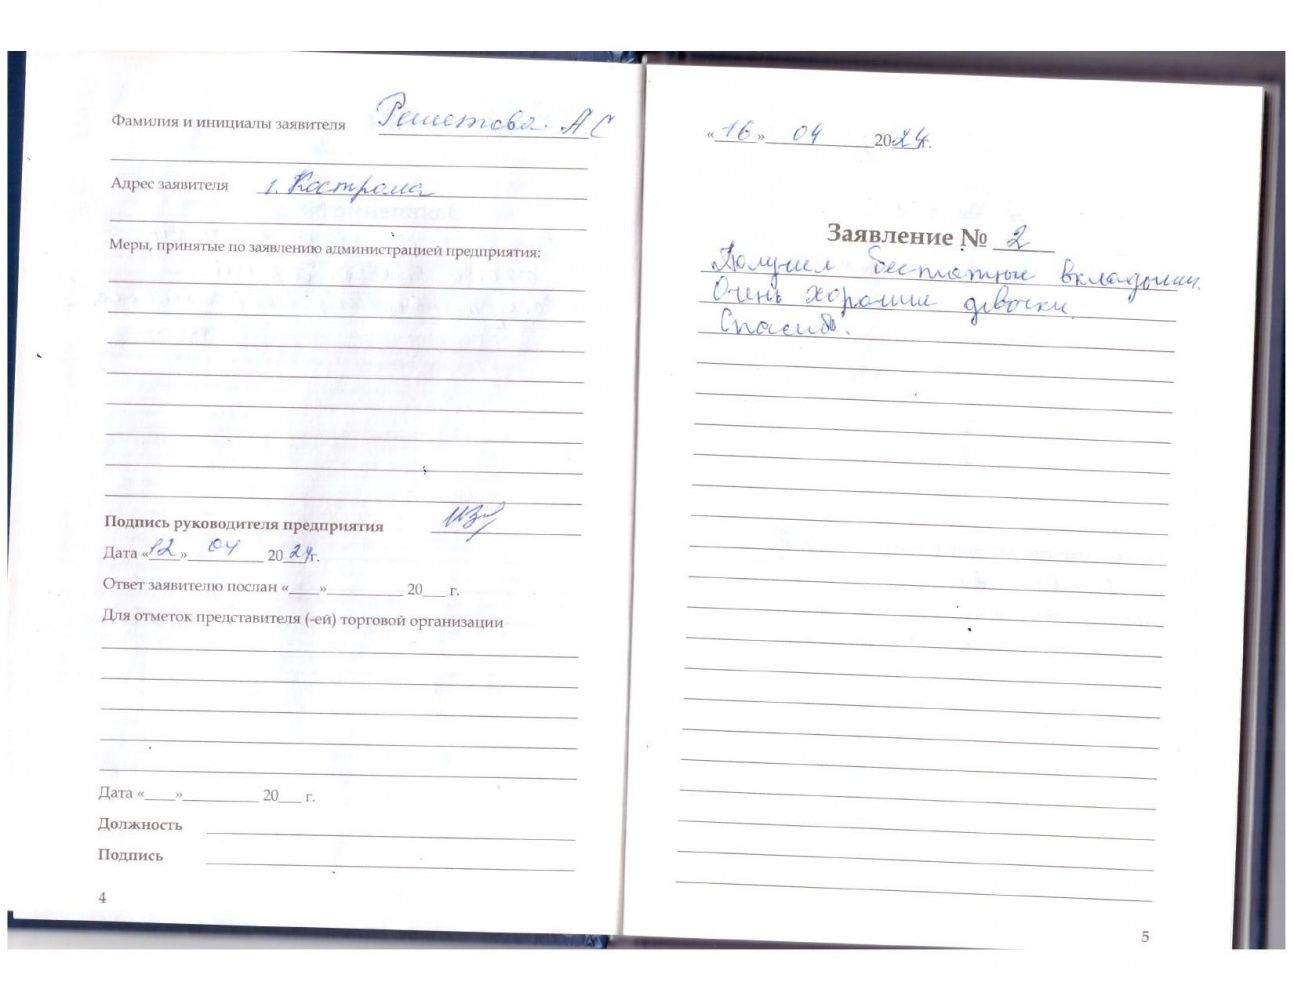 Фамилия и инициалы заявителя Решетова А.С
Адрес заявителя г. Кострома
Меры, принятые по заявлению администрацией предприятия:
Подпись руководителя предприятия
Дата «12» 04 2024г.
Ответ заявителю послан «____»__________ 20___ г.
Для отметок представителя (-ей) торговой организации
Дата «____»__________ 20___ г.
Должность
Подпись
4
«16» 04 2024г.
Заявление № 2
Получил бесплатные вкладыши.
Очень хорошие девочки.
Спасибо.
5